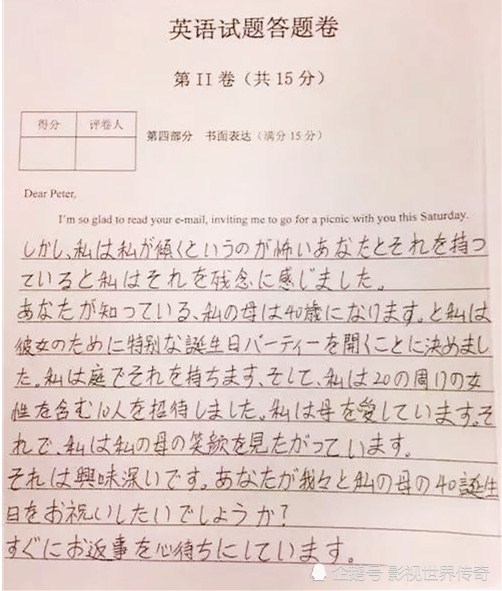 英语试题答题卷
第 II 卷（共 15 分）
得分 评卷人
第四部分 书面表达（满分 15 分）
Dear Peter,
I'm so glad to read your e-mail, inviting me to go for a picnic with you this Saturday.
しかし、私は私が傾くというのが怖いあなたとそれを持っ
ていると私はそれを残念に感じました。
あなたが知っている、私の母は40歳になります。と私は
彼女のために特別な誕生日パーティーを開くことに決めまし
た。私は庭でそれを持ちます、そして、私は20の周りの女
性を含む10人を招待しました。私は母を愛しています。そ
れで、私は私の母の笑顔を見たがっています。
それは興味深いです。あなたが我々と私の母の40誕生
日をお祝いしたいでしょうか？
すぐにお返事を心待ちにしています。
企鹅号 影视世界传奇